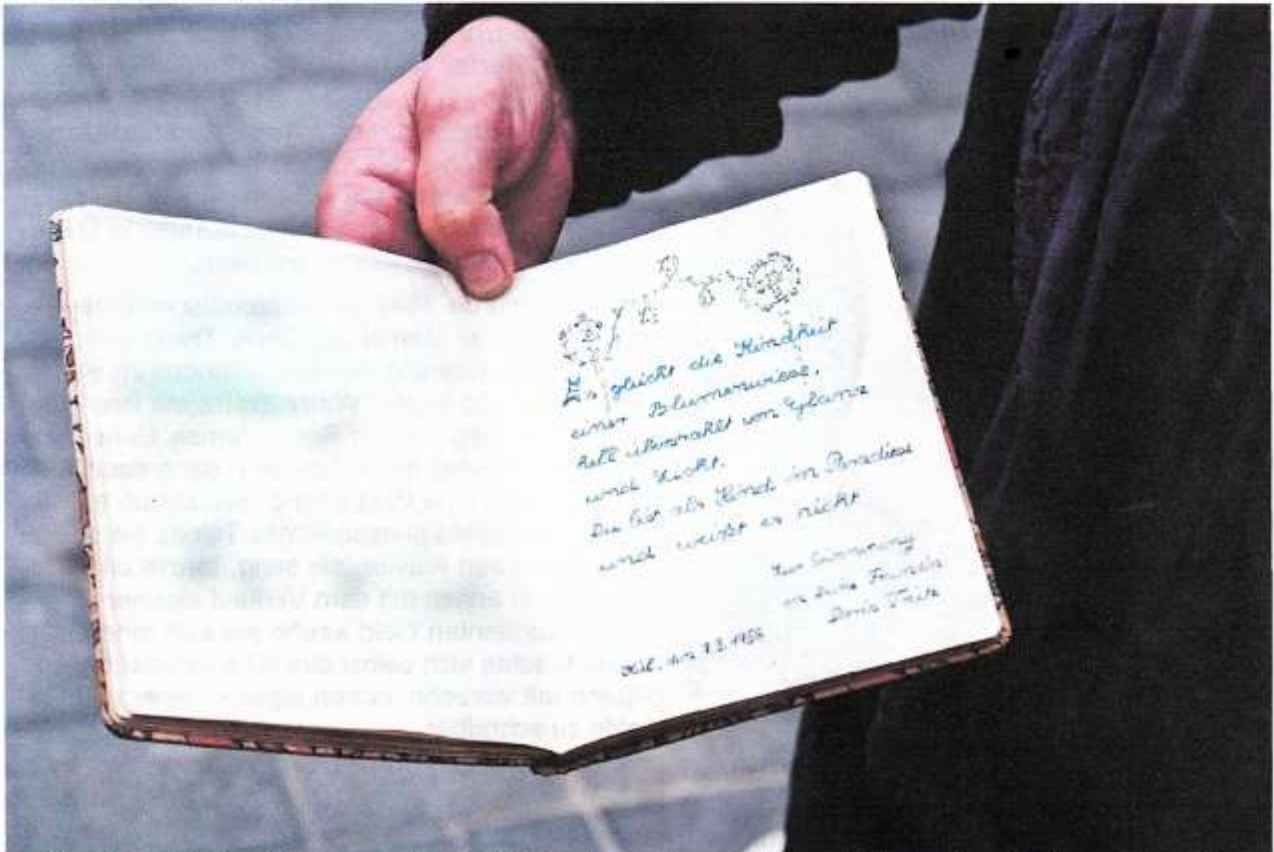 Es gleicht die Kindheit
einer Blumenwiese,
hell überstrahlt von Glanz
und Licht.
Du bist als Kind im Paradiese
und weißt es nicht
Zur Erinnerung
an Deine Freundin
Doris Treitz
Kiel, den 7.3.1956